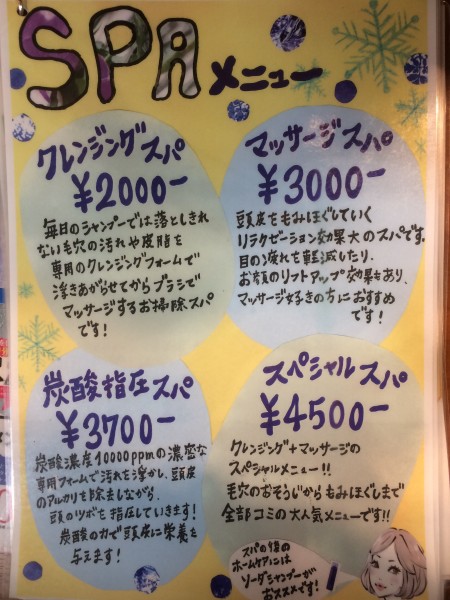 SPAメニュー
クレンジングスパ
¥2000-
毎日のシャンプーでは落としきれ
ない毛穴の汚れや皮脂を
専用のクレンジングフォームで
浮きあがらせてからブラシで
マッサージするお掃除スパ
です!
マッサージスパ
¥3000-
頭皮をもみほぐしていく
リラクゼーション効果大のスパです。
目の疲れを軽減したり、
お顔のリフトアップ効果もあり、
マッサージ好きの方におすすめ
です!
炭酸指圧スパ
¥3700-
炭酸濃度10000ppmの濃密な
専用フォームで汚れを浮かし、頭皮
のアルカリを除去しながら、
頭のツボを指圧していきます!
炭酸の力で頭皮に栄養を
与えます!
スペシャルスパ
¥4500-
クレンジング+マッサージの
スペシャルメニュー!!
毛穴のおそうじからもみほぐしまで
全部コミの大人気メニューです!!
スパの後の
ホームケアには
ソーダシャンプーが
おススメです!